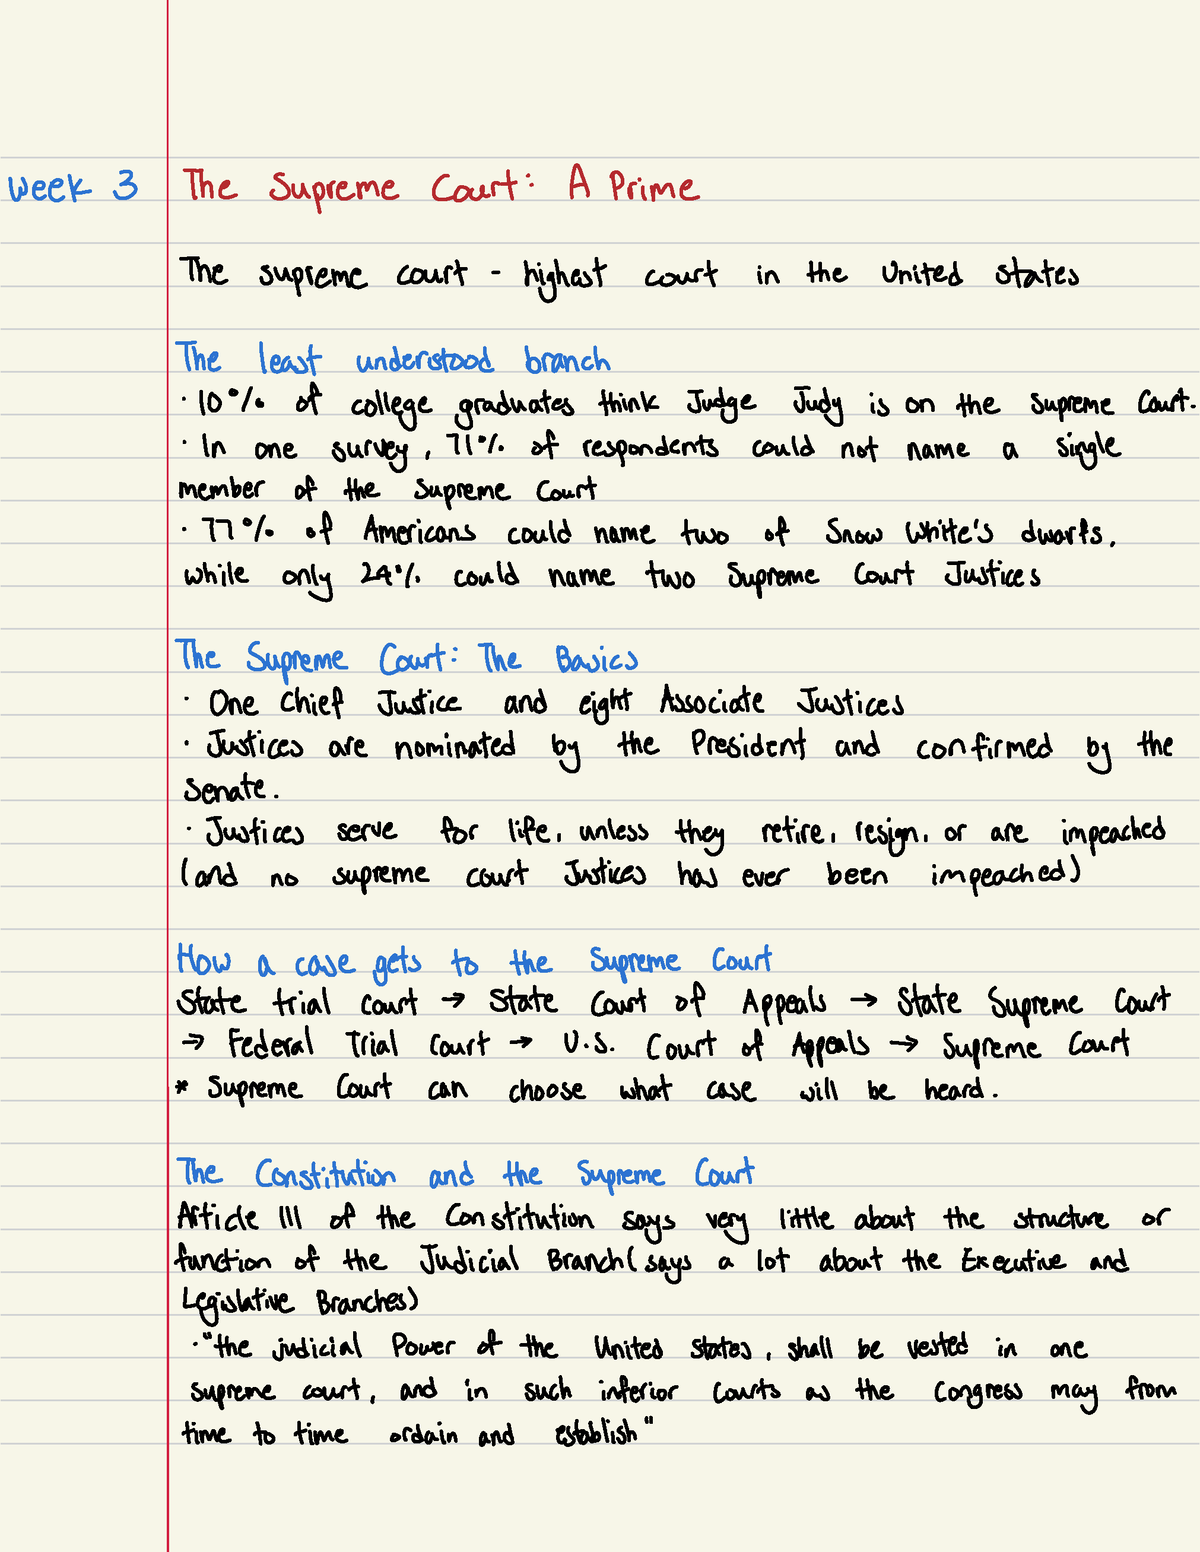 Week 3
The Supreme Court: A Prime
The supreme court - highest court in the United States
The least understood branch
· 10% of college graduates think Judge Judy is on the Supreme Court.
· In one survey, 71% of respondents could not name a single
member of the Supreme Court
· 77% of Americans could name two of Snow White's dwarfs,
while only 24% could name two Supreme Court Justices
The Supreme Court: The Basics
· One Chief Justice and eight Associate Justices
· Justices are nominated by the President and confirmed by the
Senate.
· Justices serve for life, unless they retire, resign, or are impeached
(and no supreme court Justices has ever been impeached)
How a case gets to the Supreme Court
State trial court → State Court of Appeals → State Supreme Court
→ Federal Trial Court → U.S. Court of Appeals → Supreme Court
* Supreme Court can choose what case will be heard.
The Constitution and the Supreme Court
Article III of the Constitution says very little about the structure or
function of the Judicial Branch (says a lot about the Executive and
Legislative Branches)
· "the judicial Power of the United States, shall be vested in one
supreme court, and in such inferior Courts as the Congress may from
time to time ordain and establish"